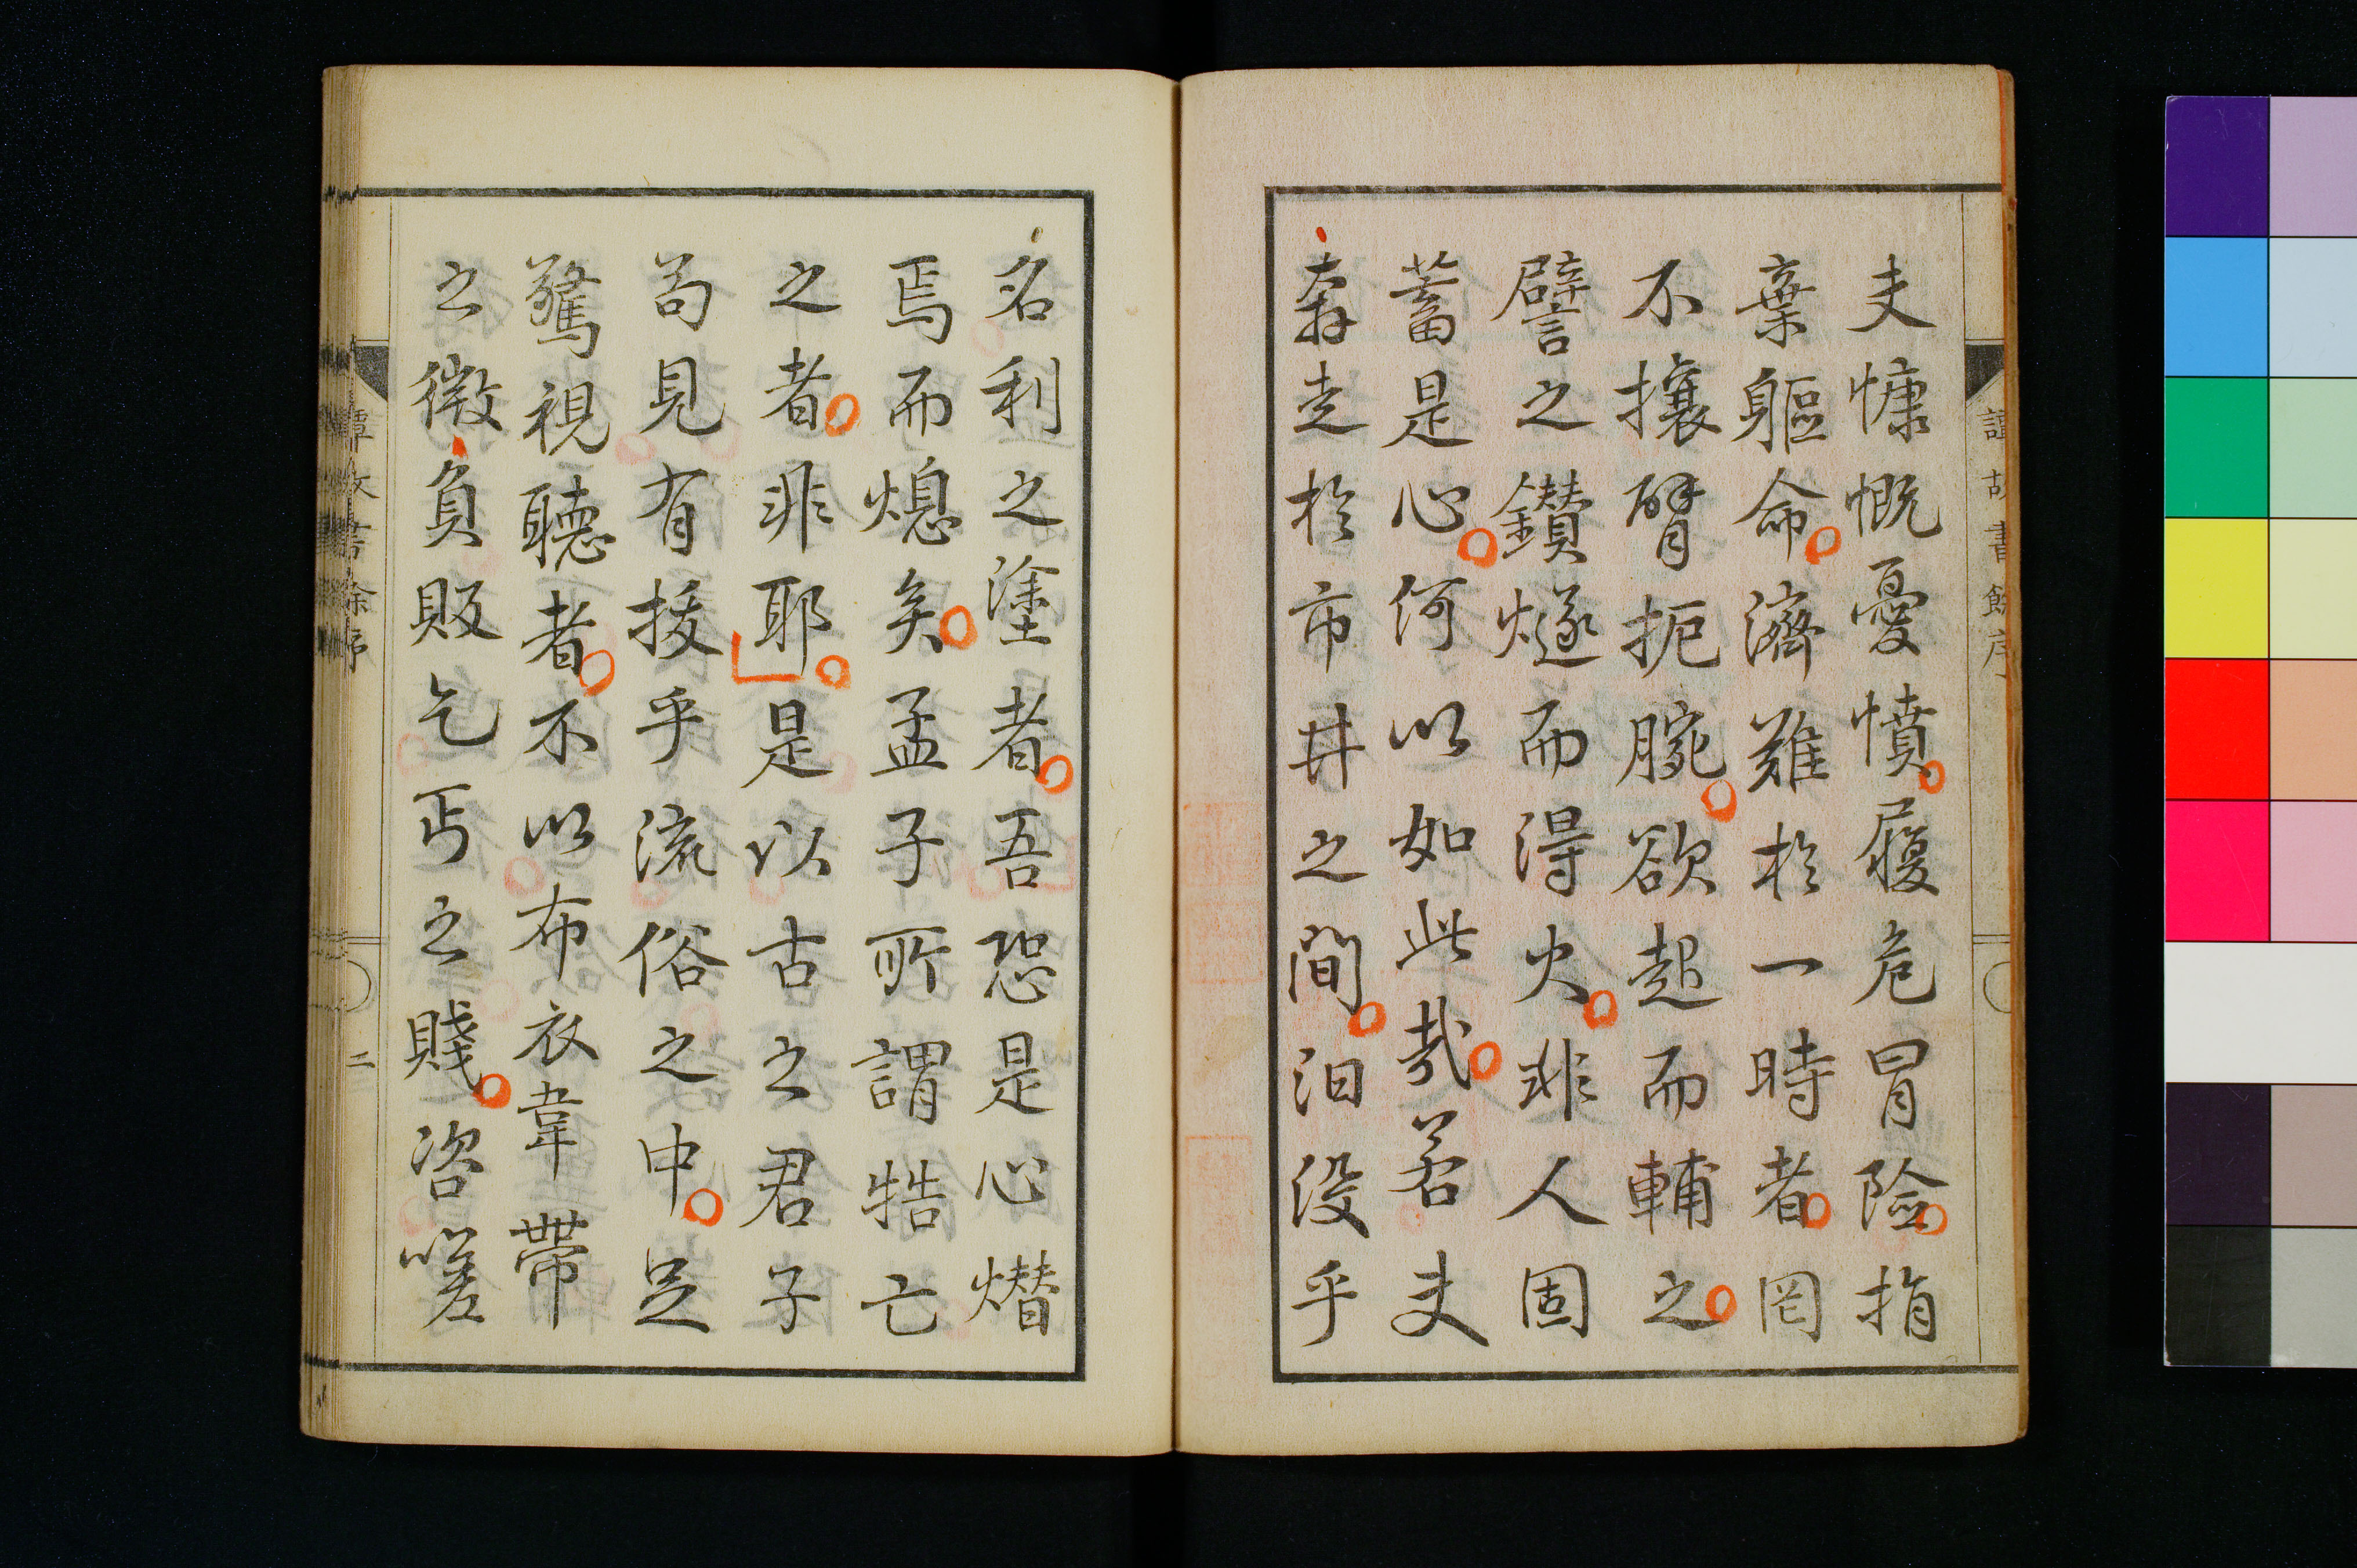 夫慷慨憂憤履危冒險指
棄軀命濟難於一時者罔
不攘臂扼腕欲起而輔之
譬之鑽燧而得火非人固
蓄是心何以如此哉若夫
奔走於市井之間汩沒乎
名利之塗者吾恐是心熸
焉而熄矣孟子所謂牿亡
之者非耶是以古之君子
苟見有拔乎流俗之中足
驚視聽者不以布衣韋帶
之微負販乞丐之賤咨嗟
書餘序
二